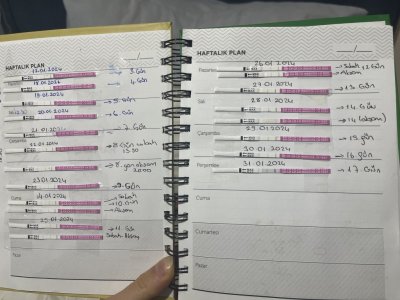 HAFTALIK PLAN
17.01.2024
→ 3. Gün
18.01.2024
→ 4. Gün
19.01.2024
→ 5. Gün
20.01.2024
→ 6. Gün
21.01.2024
→ 7. Gün
Çarşamba
22.01.2024
→ 8. Gün
→ 8. gün akşam
23.01.2024
→ 9. Gün
Cuma
24.01.2024
→ Sabah
→ 10. Gün
→ Akşam
25.01.2024
→ 11. Gün
Sabah-Akşam
Pazar
HAFTALIK PLAN
26.01.2024
Pazartesi
→ Sabah 12 Gün
→ Akşam
27.01.2024
→ 13 Gün
Salı
28.01.2024
→ 14 Gün
→ 14 (akşam)
Çarşamba
29.01.2024
→ 15 gün
30.01.2024
→ 16 gün
Perşembe
31.01.2024
→ 17 Gün
Cuma
Cumartesi
Pazar